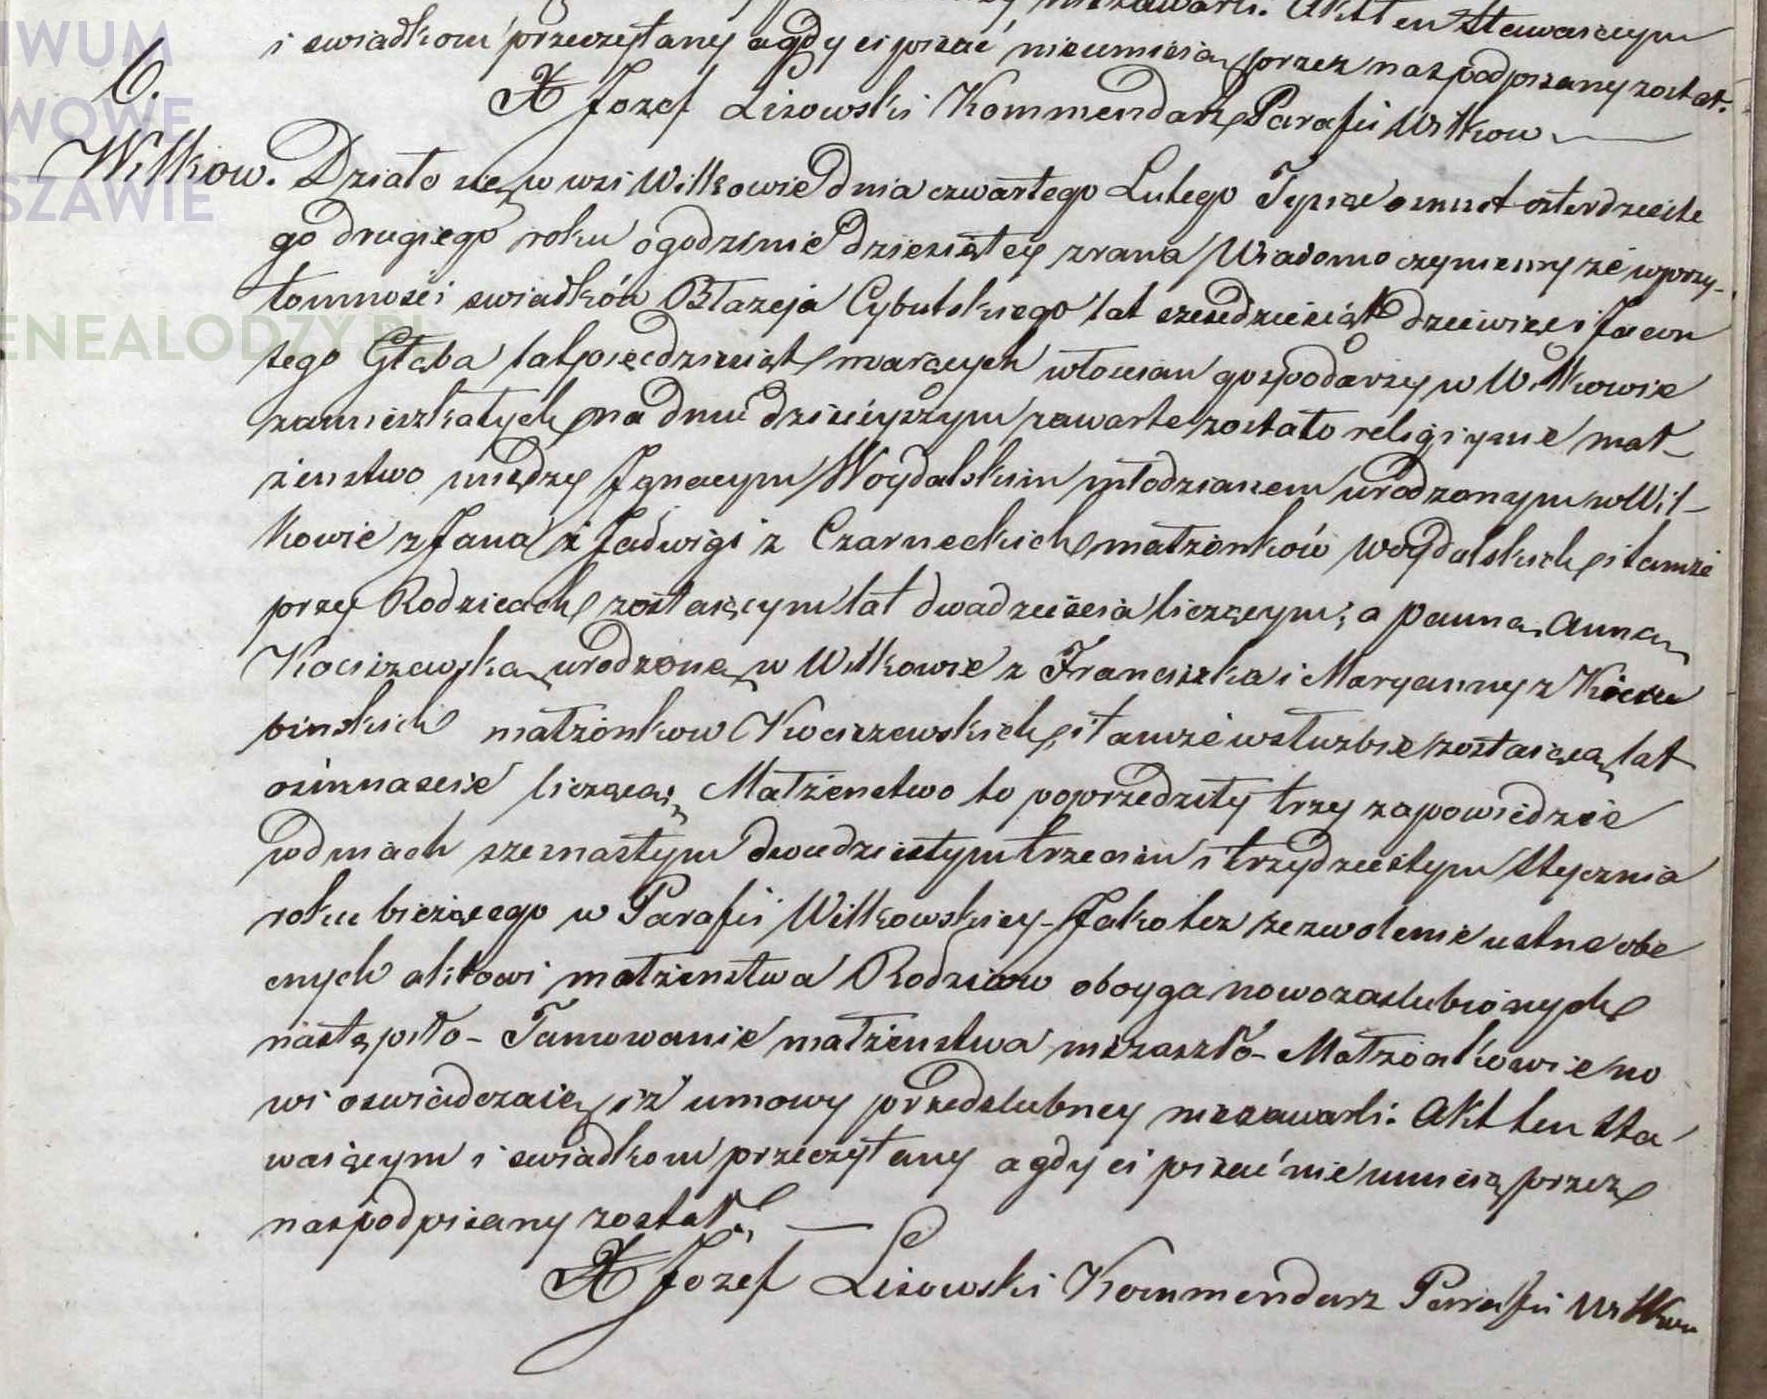 niezawarli. Akt ten Stawaiącym
i swiadkom przeczytany a gdy ci pisać nieumieią przez nas podpisany został.
X Jozef Lisowski Kommendarz Parafii Wilkow
6.
Wilkow. Działo się w wsi Wilkowie dnia czwartego Lutego Tysiąc osmset czterdzieste
go drugiego roku o godzinie dziesiątey zrana Wiadomo czyniemy że w przy-
tomności swiadków Błażeja Cybulskiego lat szesdziesiąt dziewięc i Jacen
tego Głąba lat pięcdziesiąt maiących włoscian gospodarzy w Wilkowie
zamieszkałych na dniu dzisieyszym zawarte zostało religijne mał-
żenstwo między Ignacym Woydalskim młodzianem urodzonym w Wil-
kowie z Jana i Jadwigi z Czarneckich małżonków Woydalskich i tamże
przy Rodzicach zostaiącym lat dwadzieścia liczącym; a Panną Anną
Kociszewską urodzoną w Wilkowie z Franciszka i Maryanny z
binskich małżonkow Kociszewskich, i tamże w służbie zostaiącą lat
osimnascie liczącą; Małżenstwo to poprzedziły trzy zapowiedzie
w dniach szesnastym dwudziestym trzecim i trzydziestym Stycznia
roku bieżącego w Parafii Wilkowskiey - Jako też zezwolenie ustne obe
cnych aktowi małżenstwa Rodzicow oboyga nowozaslubionych
nastąpiło - Tamowanie małżenstwa niezaszło - Małżonkowie no
wi oswiadczaią iż umowy przedslubney niezawarli. Akt ten Sta
waiącym i swiadkom przeczytany a gdy ci pisać nie umieią przez
nas podpisany został. —
X Jozef Lisowski Kommendarz Parafii Wilkow
ENEALODZY.PL